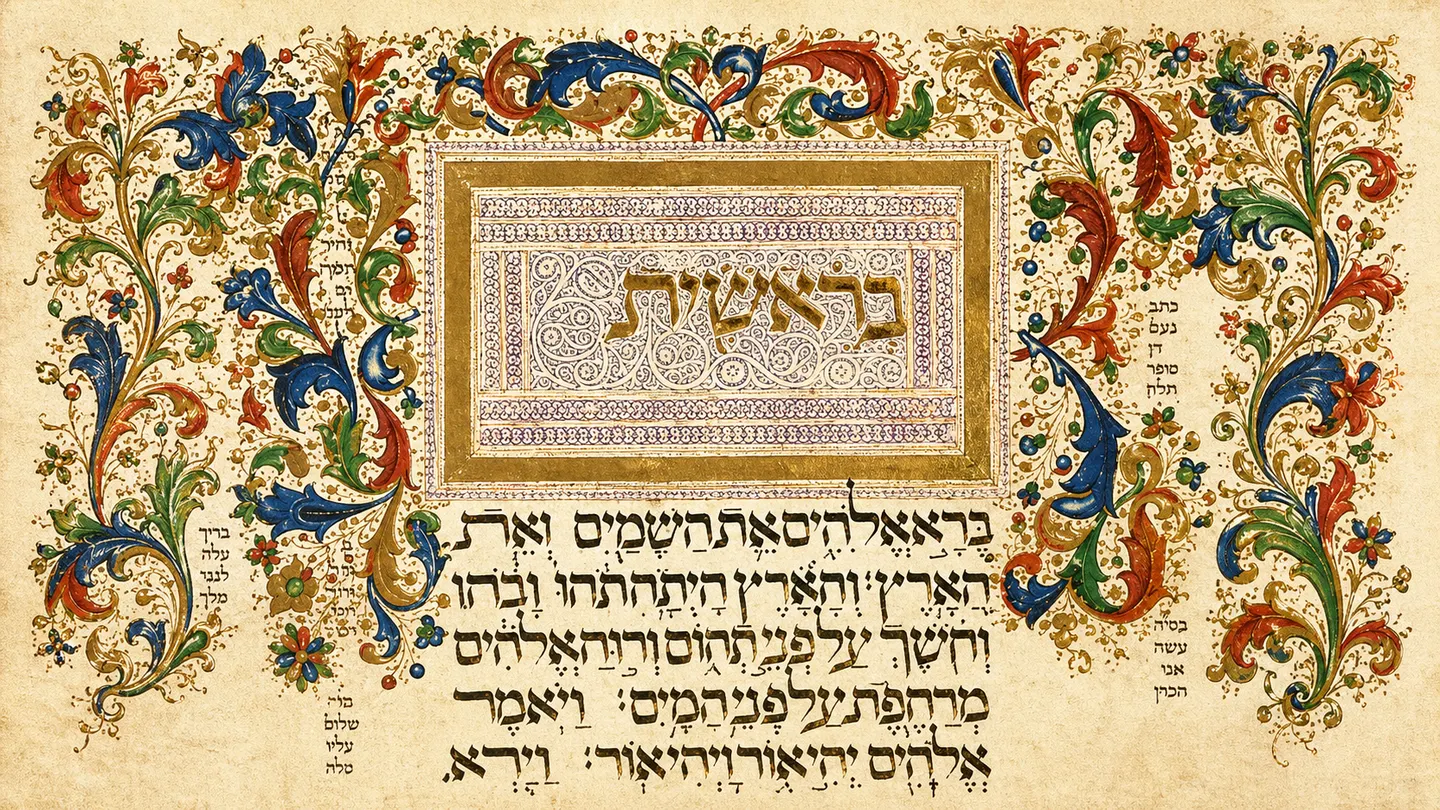 בראשית
בָּרָא אֱלֹהִים אֵת הַשָּׁמַיִם וְאֵת
הָאָרֶץ׃ וְהָאָרֶץ הָיְתָה תֹהוּ וָבֹהוּ
וְחֹשֶׁךְ עַל פְּנֵי תְהוֹם וְרוּחַ אֱלֹהִים
מְרַחֶפֶת עַל פְּנֵי הַמָּיִם׃ וַיֹּאמֶר
אֱלֹהִים יְהִי אוֹר וַיְהִי אוֹר׃ וַיַּרְא
כתב
נעם
דן
סופר
עשה
אנו
הכהן
בריך
עלה
לנגד
מלך
שלום
עליו